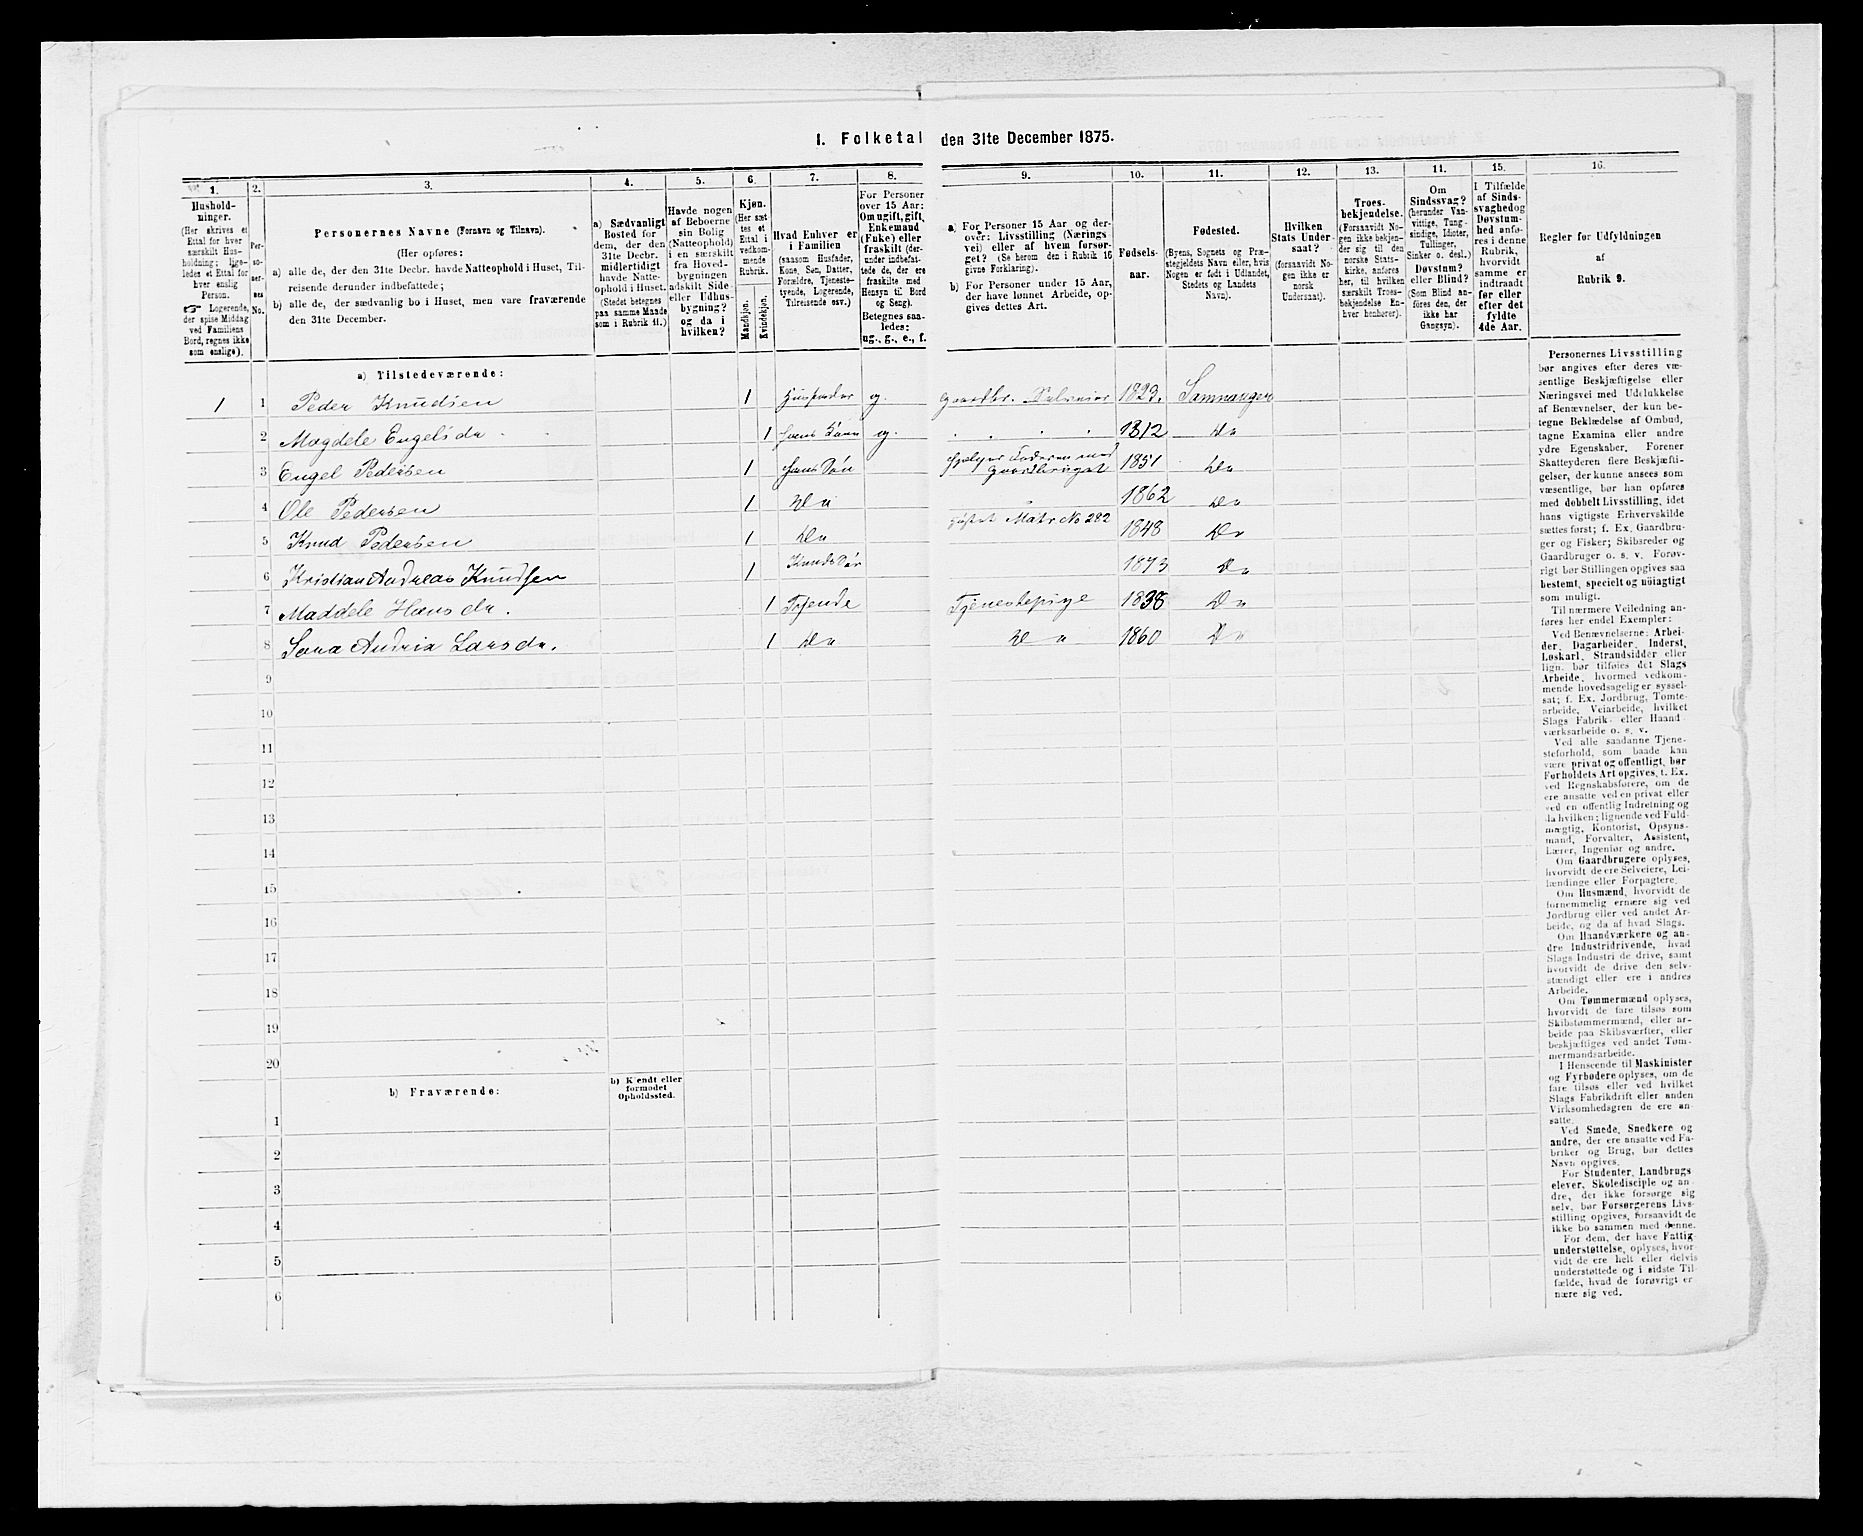 1. Folketal den 31te December 1875.
1. 2. 3. 4. 5. 6. 7. 8. 9. 10. 11. 12. 13. 11. 15. 16.
Hushold-
ninger.
(Her skrives et
Ettal for hver
særskilt Hus-
holdning; lige-
ledes et Ettal for
hver enslig
Person.
☞ Logerende,
der spise Middag
ved Familiens
Bord, regnes ikke
som enslige).
Per-
so-
ner-
nes
No.
Personernes Navne (Fornavn og Tilnavn).
(Her opføres:
a) alle de, der den 31te Decbr. havde Natteophold i Huset, Til-
reisende derunder indbefattede;
b) alle de, der sædvanlig bo i Huset, men vare fraværende
den 31te December.
a) Sædvanligt
Bosted for
dem, der den
31te Decbr.
midlertidigt
havde Natte-
ophold i Huset.
(Stedet betegnes
paa samme Maade
som i Rubrik 11.)
Havde nogen
af Beboerne
sin Bolig
(Natteophold)
i en særskilt
fra Hoved-
bygningen
adskilt Side-
eller Udhus-
bygning?
og da i
hvilken?
Kjøn.
(Her sæt
tes et
Ettal i
vedkom-
mende
Rubrik.
Mandkjøn.
Kvindekjøn.
Hvad Enhver er
i Familien
(saasom Husfader,
Kone, Søn, Datter,
Forældre, Tjeneste-
tyende, Logerende,
Tilreisende osv.)
For Personer
over 15 Aar:
Om ugift, gift,
Enkemand
(Enke) eller
fraskilt (der-
under indbefat-
tede de, der ere
fraskilte med
Hensyn til Bord
og Seng).
Betegnes saa-
ledes:
ug., g., e., f.
a) For Personer 15 Aar og der-
over: Livsstilling (Nærings
vei) eller af hvem forsør-
get? (Se herom den i Rubrik 16
givne Forklaring).
b) For Personer under 15 Aar,
der have lønnet Arbeide, op-
gives dettes Art.
Fødsels-
aar.
Fødested.
(Byens, Sognets og Præ-
stegjeldets Navn eller, hvis
Nogen er født i Udlandet,
Stedets og Landets
Navn).
Hvilken
Stats Under-
saat?
(forsaavidt No-
gen ikke er
norsk
Undersaat).
Troes-
bekjendelse.
(Forsaavidt No-
gen ikke bekjen-
der sig til den
norske Stats-
kirke, anføres
her, til hvilken
særskilt Troes-
bekjendelse En-
hver henhører).
Om
Sindssvag?
(herunder Van-
vittige, Tung-
sindige, Idioter,
Tullinger,
Sinker o. desl.)
Døvstum?
eller Blind?
(Som Blind an-
føres den, der
ikke har
Gangsyn).
I Tilfælde
af Sinds-
svaghed og
Døvstum-
hed anfø-
res i denne
Rubrik,
hvorvidt
samme er
indtraadt
før eller
efter det
fyldte
4de Aar.
Regler før Udfyldningen
af
Rubrik 9.
a) Tilstedeværende:
1 1 Peder Knudsen 1 Husfader g. Gaardbr. Selveier 1823. Samnanger
2 Magdele Engelsdr 1 hans Kone g. 1812 Do
3 Engel Pedersen 1 hans Søn hjelper Faderen med Gaardbruget 1851 Do
4 Ole Pedersen 1 Do 1862 Do
5 Knud Pedersen 1 Do Matr No 282 1848 Do
6 Kristian Andreas Knudsen 1 Knuds Søn 1873 Do
7 Maddele Hansdr. 1 Tjende Tjenestepige 1838 Do
8 Andria Larsdr. 1 Do Do 1860 Do
9
10
11
12
13
14
15
16
17
18
19
20
b) Fraværende:
b) Kjendt eller
formodet
Opholdssted.
1
2
3
4
5
6
Personernes Livsstilling
bør angives efter deres væ-
sentlige Beskjæftigelse eller
Næringsvei med Udelukkelse
af Benævnelser, der kun be-
tegne Beklædelse af Ombud,
tagne Examina eller andre
ydre Egenskaber. Forener
Skatteyderen flere Beskjæfti-
gelser, der kunne ansees som
væsentlige, bør han opføres
med dobbelt Livsstilling, idet
hans vigtigste Erhvervskilde
sættes først; f. Ex. Gaardbru-
ger og Fisker; Skibsreder og
Gaardbruger o. s. v. Forøv-
rigt bør Stillingen opgives saa
bestemt, specielt og nøiagtigt
som muligt.
Til nærmere Veiledning an-
føres her endel Exempler:
Ved Benævnelserne: Arbei-
der, Dagarbeider, Inderst,
Løskarl, Strandsidder eller
lign. bør tilføies det Slags
Arbeide, hvormed vedkom-
mende hovedsagelig er syssel-
sat; f. Ex. Jordbrug, Tomte-
arbeide, Veiarbeide, hvilket
Slags Fabrik- eller Haand-
værksarbeide o. s. v.
Ved alle saadanne Tjene-
steforhold, som baade kan
være privat og offentligt, bør
Forholdets Art opgives, t. Ex.
ved Regnskabsførere, om de
ere ansatte ved en privat eller
ved en offentlig Indretning og
da hvilken; lignende ved Fuld-
mægtig, Kontorist, Opsyns-
mand, Forvalter, Assistent,
Lærer, Ingeniør og andre.
Om Gaardbrugere oplyses,
hvorvidt de ere Selveiere, Lei-
lændinge eller Forpagtere.
Om Husmænd, hvorvidt de
fornemmelig ernære sig ved
Jordbrug eller ved andet Ar-
beide, og da af hvad Slags.
Om Haandværkere og an-
dre Industridrivende, hvad
Slags Industri de drive, samt
hvorvidt de drive den selv-
stændigt eller ere i andres
Arbeide.
Om Tømmermænd oplyses,
hvorvidt de fare tilsøs som
Skibstømmermænd, eller ar-
beide paa Skibsværfter, eller
beskjæftiges ved andet Tøm-
mermandsarbeide.
I Henseende til Maskinister
og Fyrbødere oplyses, om de
fare tilsøs eller ved hvilket
Slags Fabrikdrift eller anden
Virksomhedsgren de ere an-
satte.
Ved Smede, Snedkere og
andre, der ere ansatte ved Fa-
briker og Brug, bør dettes
Navn opgives.
For Studenter, Landbrugs
elever, Skoledisciple og an-
dre, der ikke forsørge sig
selv, bør Forsørgerens Livs-
stilling opgives, forsaavidt de
ikke bo sammen med denne.
For dem, der have Fattig-
understøttelse, oplyses, hvor-
vidt de ere helt eller delvis
understøttede og i sidste Til-
fælde, hvad de forøvrigt er
nære sig ved.